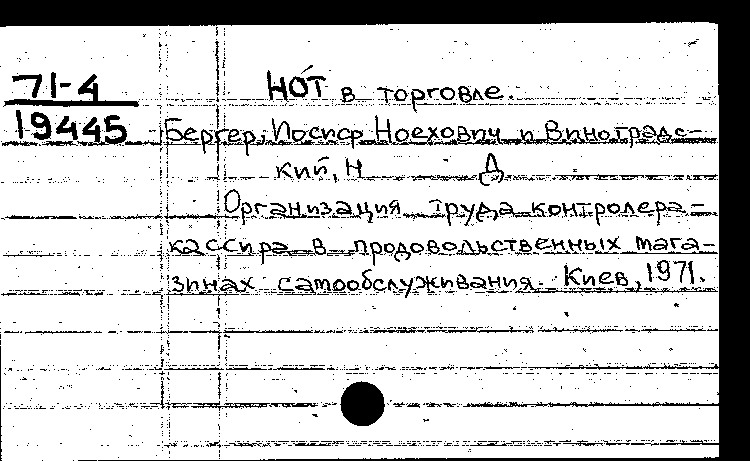 71-4
19445
НОТ в торговле.
Бергер, Иосиф Ноехович и Виноградс-
кий, Н
Д
Организация труда контролера-
кассира в продовольственных мага-
зинах самообслуживания. Киев, 1971.